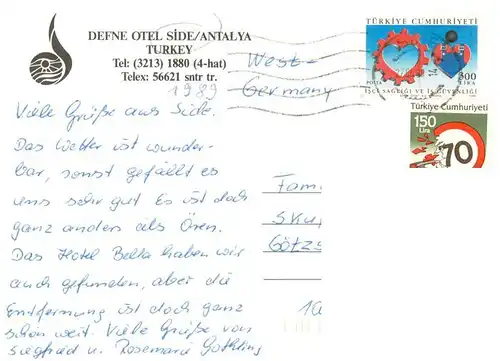 DEFNE OTEL SİDE/ANTALYA
TURKEY
Tel: (3213) 1880 (4-hat)
Telex: 56621 sntr tr.
1989
West-
Germany
TÜRKİYE CUMHURİYETİ
POSTA
300
LİRA
İŞÇİ SAĞLIĞI VE İŞ GÜVENLİĞİ
Türkiye Cumhuriyeti
150
Lira
70
Viele Grüße aus Side.
Das Wetter ist wunder-
bar, sonst gefällt es
uns sehr gut Es ist doch
ganz anders als Ören.
Das Hotel Belta haben wir
auch gefunden, aber die
Entfernung ist doch ganz
schön weit. Viele Grüße von
Siegfried u. Rosemarie
Fam.
Sku
Götz